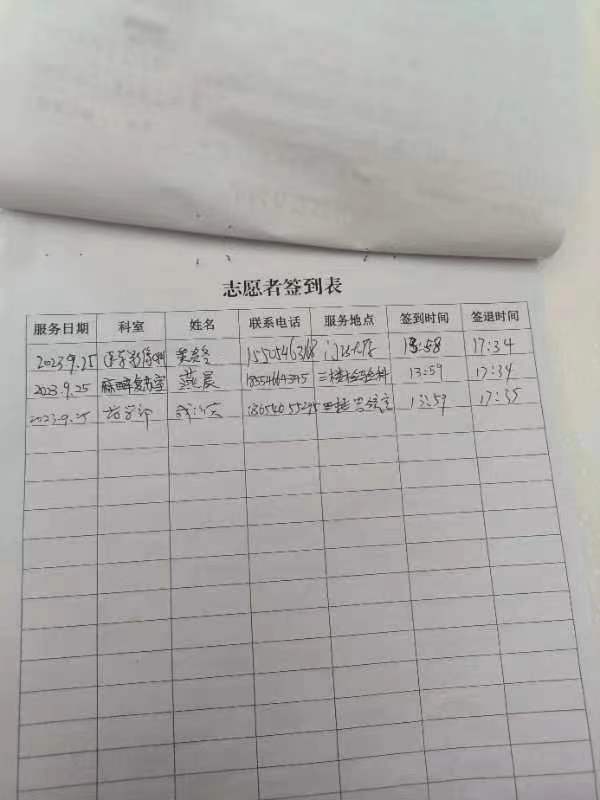 志愿者签到表
服务日期 科室 姓名 联系电话 服务地点 签到时间 签退时间
2023.9.25 医学影像科 门诊大厅 13:58 17:34
2023.9.25 麻醉复苏室 燕晨 三楼检验科 13:59 17:34
2023.9.25 药学部 13:59 17:35